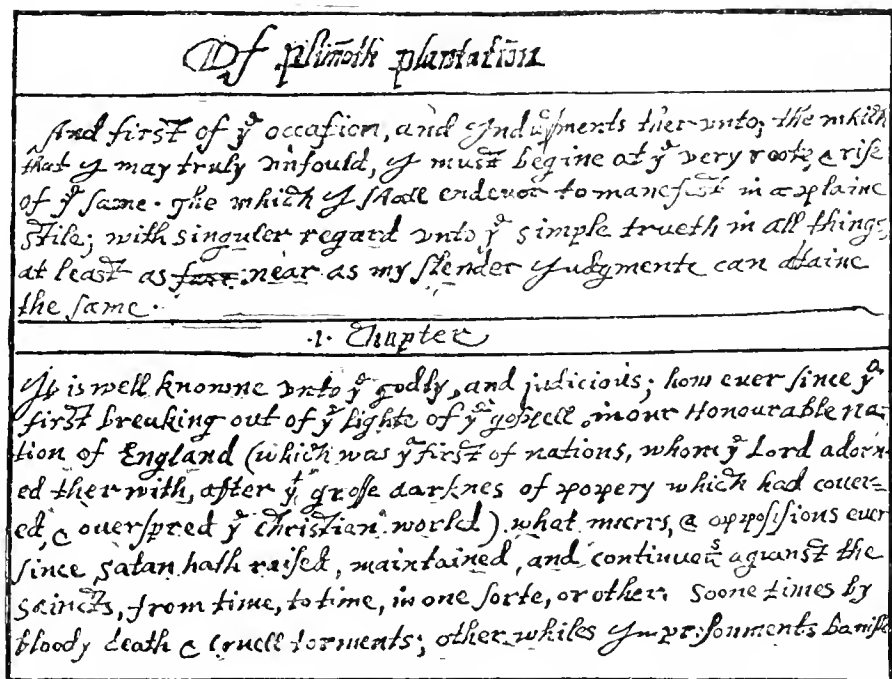 Of plim̃oth plantation
And first of yᵉ occasion, and Inducments ther vnto; the which
that I may truly vnfould, I must begine at yᵉ very roote, & rise
of yᵉ same. The which I shall endevor to manefest in a plaine
stile; with singuler regard vnto yᵉ simple trueth in all things,
at least as near as my slender Judgmente can attaine
the same.
·1· Chapter
It is well knowne vnto yᵉ godly, and judicious; how euer since yᵉ
first breaking out of yᵉ lighte of yᵉ gospell, in our Honourable na-
tion of England (which was yᵉ first of nations, whom yᵉ Lord adorn-
ed ther with, after yᵗ grosse darknes of popery which had couer-
ed, & ouerspred yᵉ christian world) what warrs, & oppossisions euer
since satan hath raised, maintained, and continued against the
saincts, from time, to time, in one sorte, or other. Some times by
bloody death & cruell torments; other whiles Imprisonments, banish-